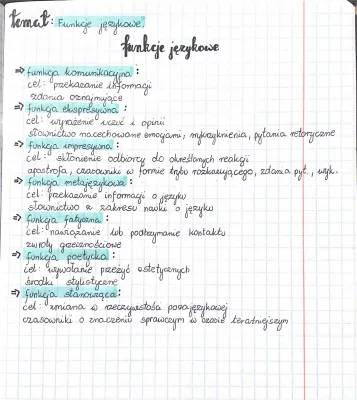 temat: Funkcje językowe.
funkcje językowe
⇒ funkcja komunikacyjna:
cel: przekazanie informacji
zdania oznajmujące
⇒ funkcja ekspresywna:
cel: wyrażenie uczuć i opinii
słownictwo nacechowane emocjami, wykrzyknienia, pytania retoryczne
⇒ funkcja impresywna:
cel: skłonienie odbiorcy do określonych reakcji
apostrofa, czasowniki w formie trybu rozkazującego, zdania pyt., wyk.
⇒ funkcja metajęzykowa:
cel: przekazanie informacji o języku
słownictwo z zakresu nauki o języku
⇒ funkcja fatyczna:
cel: nawiązanie lub podtrzymanie kontaktu
zwroty grzecznościowe
⇒ funkcja poetycka:
cel: wywołanie przeżyć estetycznych
środki stylistyczne
⇒ funkcja stanowiąca:
cel: zmiana w rzeczywistości pozajęzykowej
czasowniki o znaczeniu sprawczym w czasie teraźniejszym